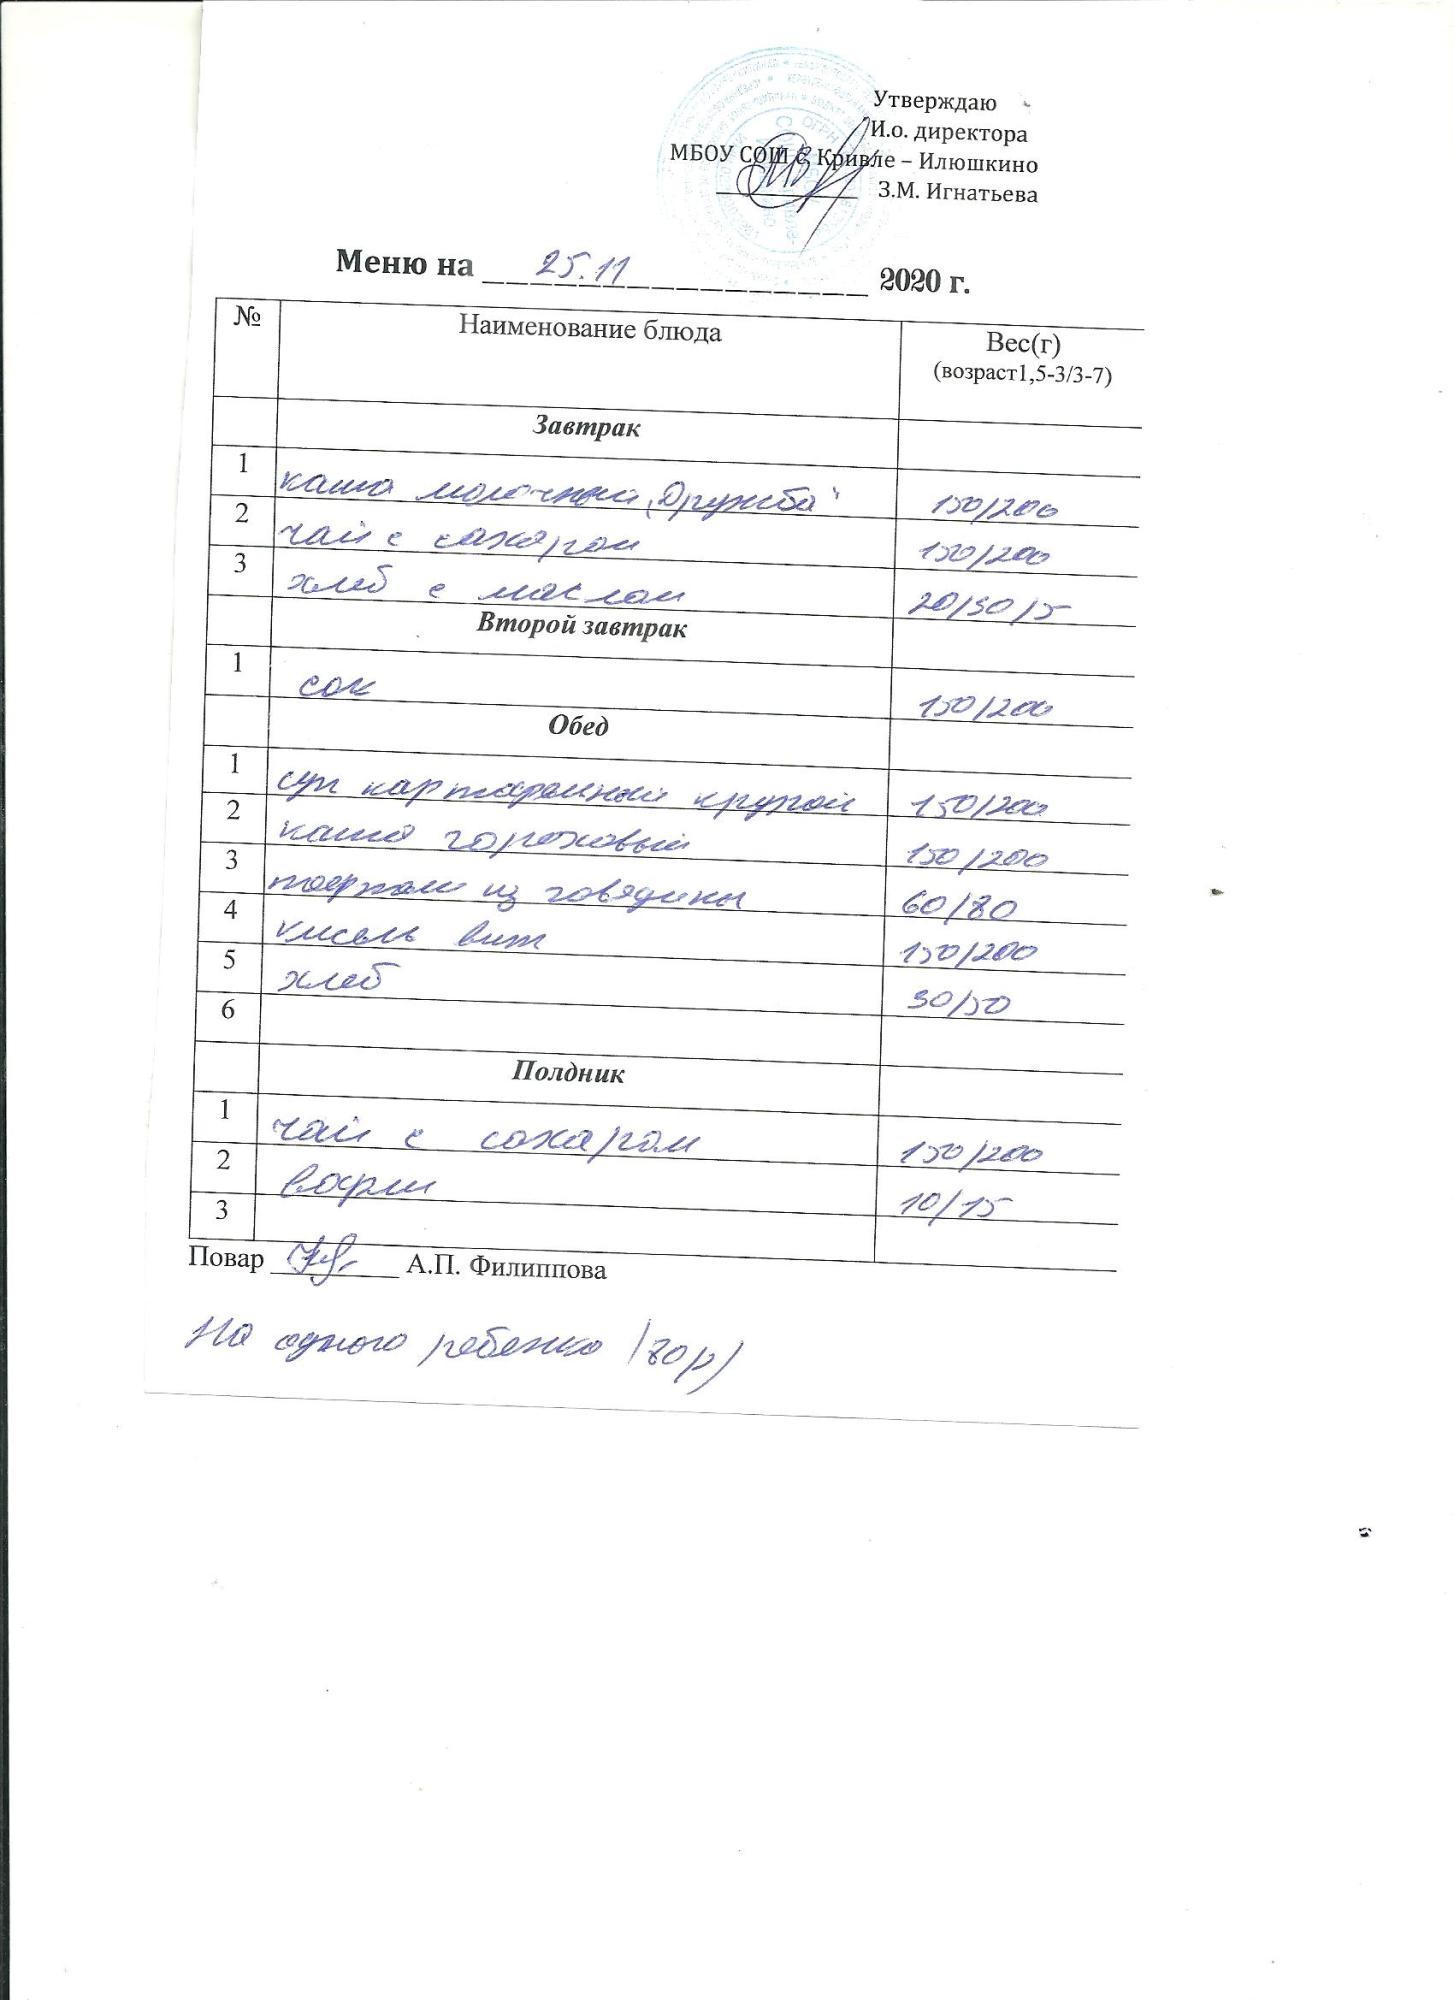 Утверждаю
И.о. директора
МБОУ СОШ с. Кривле – Илюшкино
З.М. Игнатьева
Меню на 25.11 2020 г.
№ Наименование блюда Вес(г)
(возраст1,5-3/3-7)
Завтрак
1 каша молочный „Дружба" 150/200
2 чай с сахаром 150/200
3 хлеб с маслом 20/30/5
Второй завтрак
1 сок 150/200
Обед
1 суп картофельный крупой 150/200
2 каша гороховый 150/200
3 из говядины 60/80
4 кисель вит 150/200
5 хлеб 30/50
6
Полдник
1 чай с сахаром 150/200
2 вафли 10/15
3
Повар А.П. Филиппова
На одного ребенка (80р)